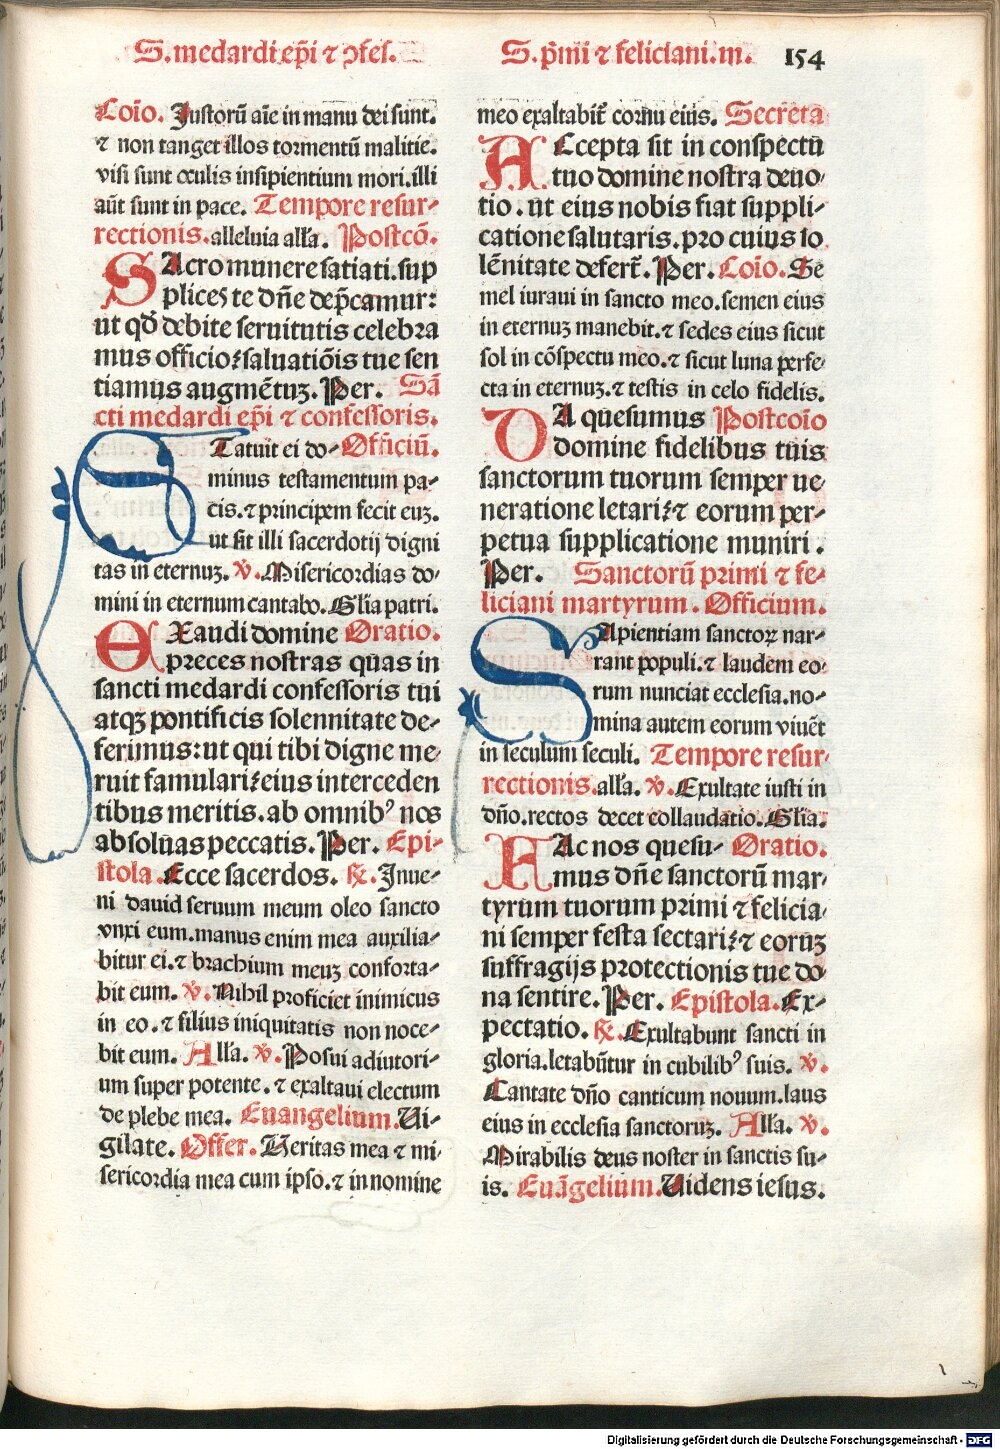 S. medardi ep̄i ⁊ ꝯfes.
S. p̄mi ⁊ feliciani. m. 154
Cōio. Justorū aīe in manu dei sunt.
⁊ non tanget illos tormentū malitie.
visi sunt oculis insipientium mori. illi
aūt sunt in pace. Tempore resur-
rectionis. alleluia alła. Postcō.
SAcro munere satiati. sup
plices te dn̄e dep̄camur:
ut qđ debite seruitutis celebra
mus officio: saluatiōis tue sen
tiamus augmētuꝫ. Per. Sā
cti medardi ep̄i ⁊ confessoris.
STatuit ei do- Officiū.
minus testamentum pa-
cis. ⁊ principem fecit euꝫ.
ut sit illi sacerdotij digni
tas in eternuꝫ. ℣. Misericordias do-
mini in eternum cantabo. Glīa patri.
EXaudi domine Oratio.
preces nostras quas in
sancti medardi confessoris tui
atqꝫ pontificis solennitate de-
ferimus: ut qui tibi digne me-
ruit famulari: eius interceden
tibus meritis. ab omnibꝰ nos
absoluas peccatis. Per. Epi-
stola. Ecce sacerdos. ℟. Inue-
ni dauid seruum meum oleo sancto
vnxi eum. manus enim mea auxilia-
bitur ei. ⁊ brachium meuꝫ conforta-
bit eum. ℣. Nihil proficiet inimicus
in eo. ⁊ filius iniquitatis non noce-
bit eum. Alła. ℣. Posui adiutori-
um super potente. ⁊ exaltaui electum
de plebe mea. Euangelium. Ui-
gilate. Offer. Veritas mea ⁊ mi-
sericordia mea cum ipso. ⁊ in nomine
meo exaltabit̄ cornu eius. Secreta
ACcepta sit in conspectu
tuo domine nostra deuo-
tio. ut eius nobis fiat suppli-
catione salutaris. pro cuius so
lēnitate defert̄. Per. Cōio. Se
mel iuraui in sancto meo. semen eius
in eternuꝫ manebit. ⁊ sedes eius sicut
sol in cōspectu meo. ⁊ sicut luna perfe-
cta in eternuꝫ. ⁊ testis in celo fidelis.
DA quesumus Postcoīo
domine fidelibus tuis
sanctorum tuorum semper ue-
neratione letari: ⁊ eorum per-
petua supplicatione muniri.
Per. Sanctorū primi ⁊ fe-
liciani martyrum. Officium.
SApientiam sanctoꝝ nar-
rant populi. ⁊ laudem eo-
rum nunciat ecclesia. no-
mina autem eorum viuēt
in seculum seculi. Tempore resur-
rectionis. alła. ℣. Exultate iusti in
dn̄o. rectos decet collaudatio. Glīa.
FAc nos quesu- Oratio.
mus dn̄e sanctorū mar-
tyrum tuorum primi ⁊ felicia-
ni semper festa sectari: ⁊ eoruꝫ
suffragijs protectionis tue do-
na sentire. Per. Epistola. Ex-
pectatio. ℟. Exultabunt sancti in
gloria. letabūtur in cubilibꝰ suis. ℣.
Cantate dn̄o canticum nouum. laus
eius in ecclesia sanctoruꝫ. Alła. ℣.
Mirabilis deus noster in sanctis su-
is. Euāgelium. Uidens iesus.
Digitalisierung gefördert durch die Deutsche Forschungsgemeinschaft - DFG